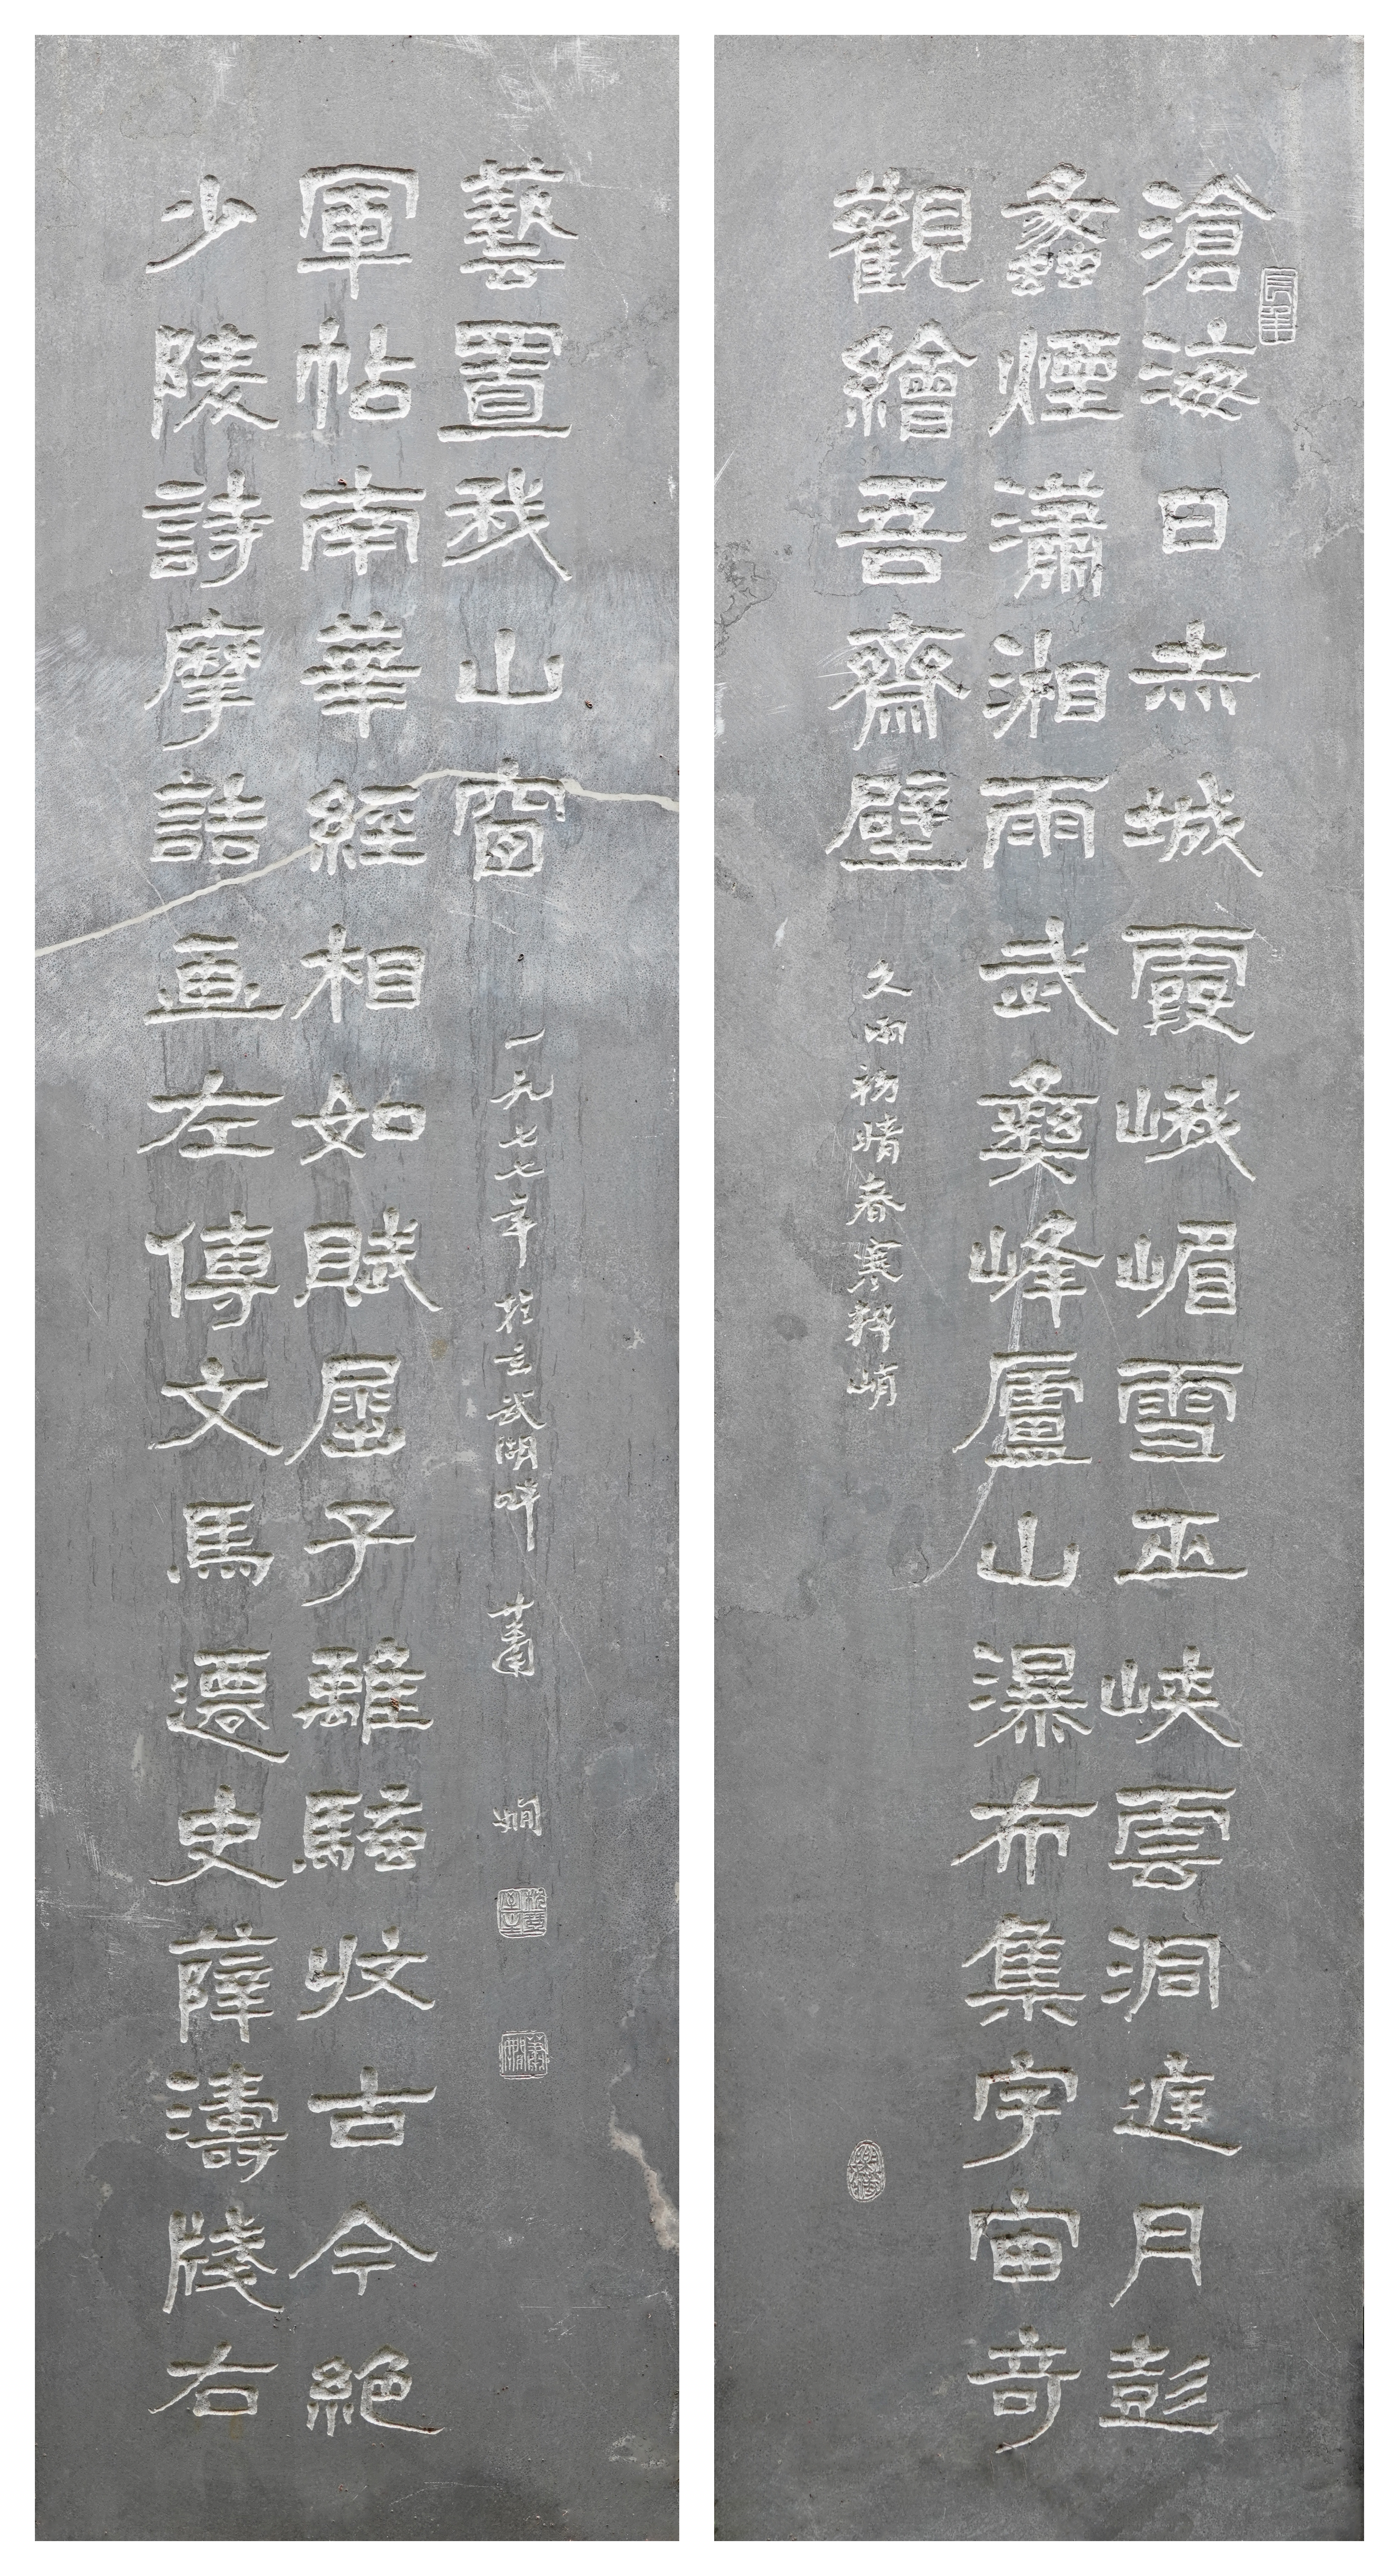 滄海日赤城霞峨嵋雪巫峽雲洞庭月彭
蠡煙瀟湘雨武彝峰廬山瀑布集宇宙奇
觀繪吾齋壁 久雨初晴春寒料峭
少陵詩摩詰畫左傳文馬遷史薛濤牋右
軍帖南華經相如賦屈子離騷收古今絕
藝置我山窗 一九七七年於玄武湖畔 蕭嫻
枕琴室主
蕭嫻